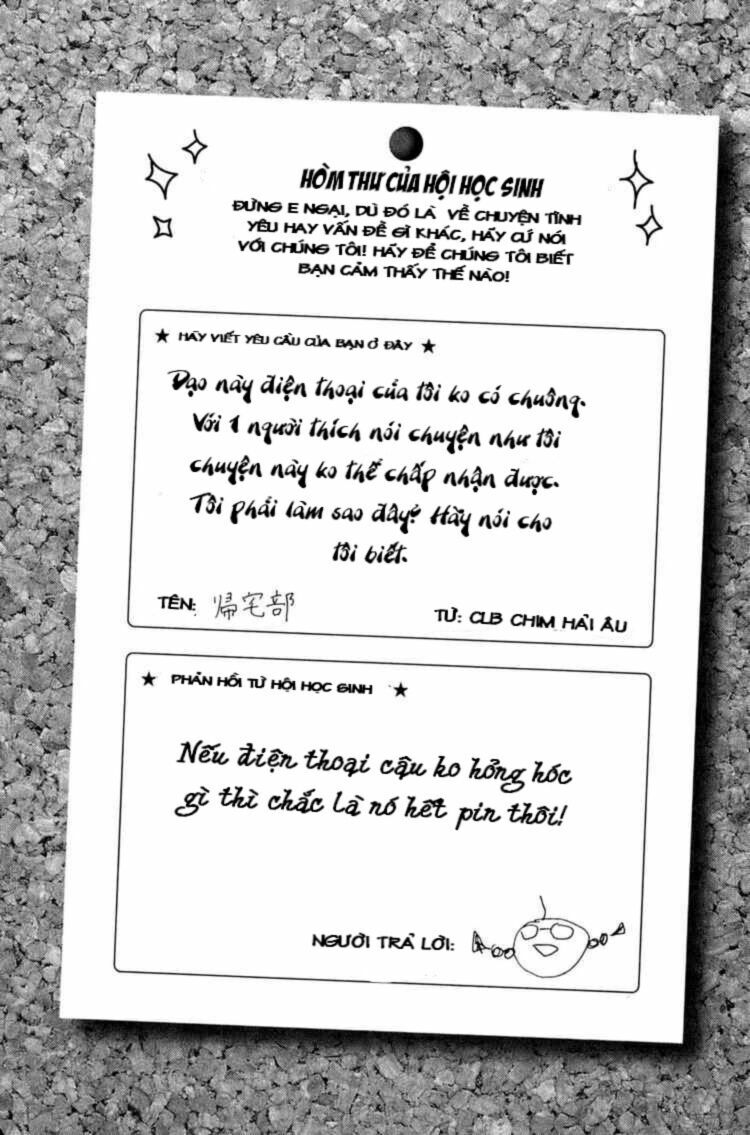 HÒM THƯ CỦA HỘI HỌC SINH
ĐỪNG E NGẠI, DÙ ĐÓ LÀ VỀ CHUYỆN TÌNH
YÊU HAY VẤN ĐỀ GÌ KHÁC, HÃY CỨ NÓI
VỚI CHÚNG TÔI! HÃY ĐỂ CHÚNG TÔI BIẾT
BẠN CẢM THẤY THẾ NÀO!
★ HÃY VIẾT YÊU CẦU CỦA BẠN Ở ĐÂY ★
Dạo này điện thoại của tôi ko có chuông.
Với 1 người thích nói chuyện như tôi
chuyện này ko thể chấp nhận được.
Tôi phải làm sao đây? Hãy nói cho
tôi biết.
TÊN: 帰宅部
TỪ: CLB CHIM HẢI ÂU
★ PHẢN HỒI TỪ HỘI HỌC SINH ★
Nếu điện thoại cậu ko hỏng hóc
gì thì chắc là nó hết pin thôi!
NGƯỜI TRẢ LỜI: